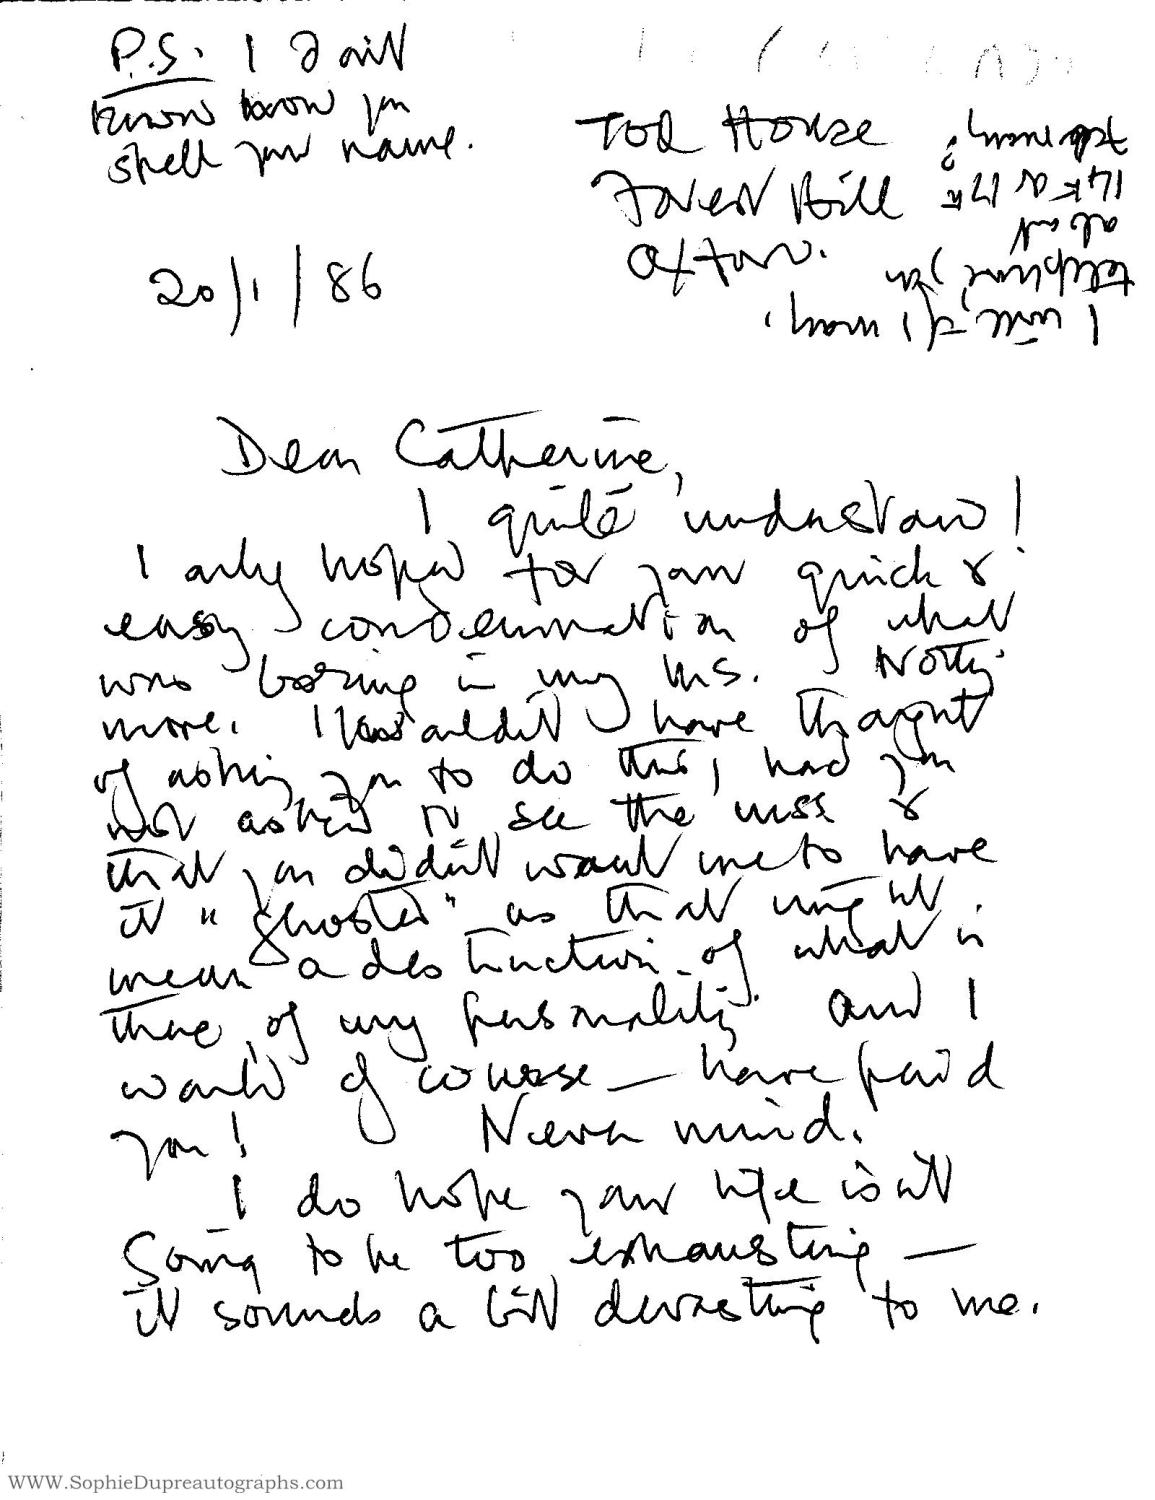 P.S. I don't
know how you
spell your name.
Tod House
Forest Hill
Oxford.
20/1/86
I will, if I may,
telephone you
about
14th or 17th
February?
Dear Catherine,
I quite understand!
I only hoped for your quick &
easy condemnation of what
was boring in my MS. Nothing
more. I wouldn't have thought
of asking you to do this, had you
not asked to see the mss &
that you didn't want me to have
it "ghosted" as that might
mean a destruction of what is
there, of my personality. And I
would of course — have paid
you! Never mind.
I do hope your life isn't
going to be too exhausting —
it sounds a bit devastating to me.
WWW.SophieDupreautographs.com